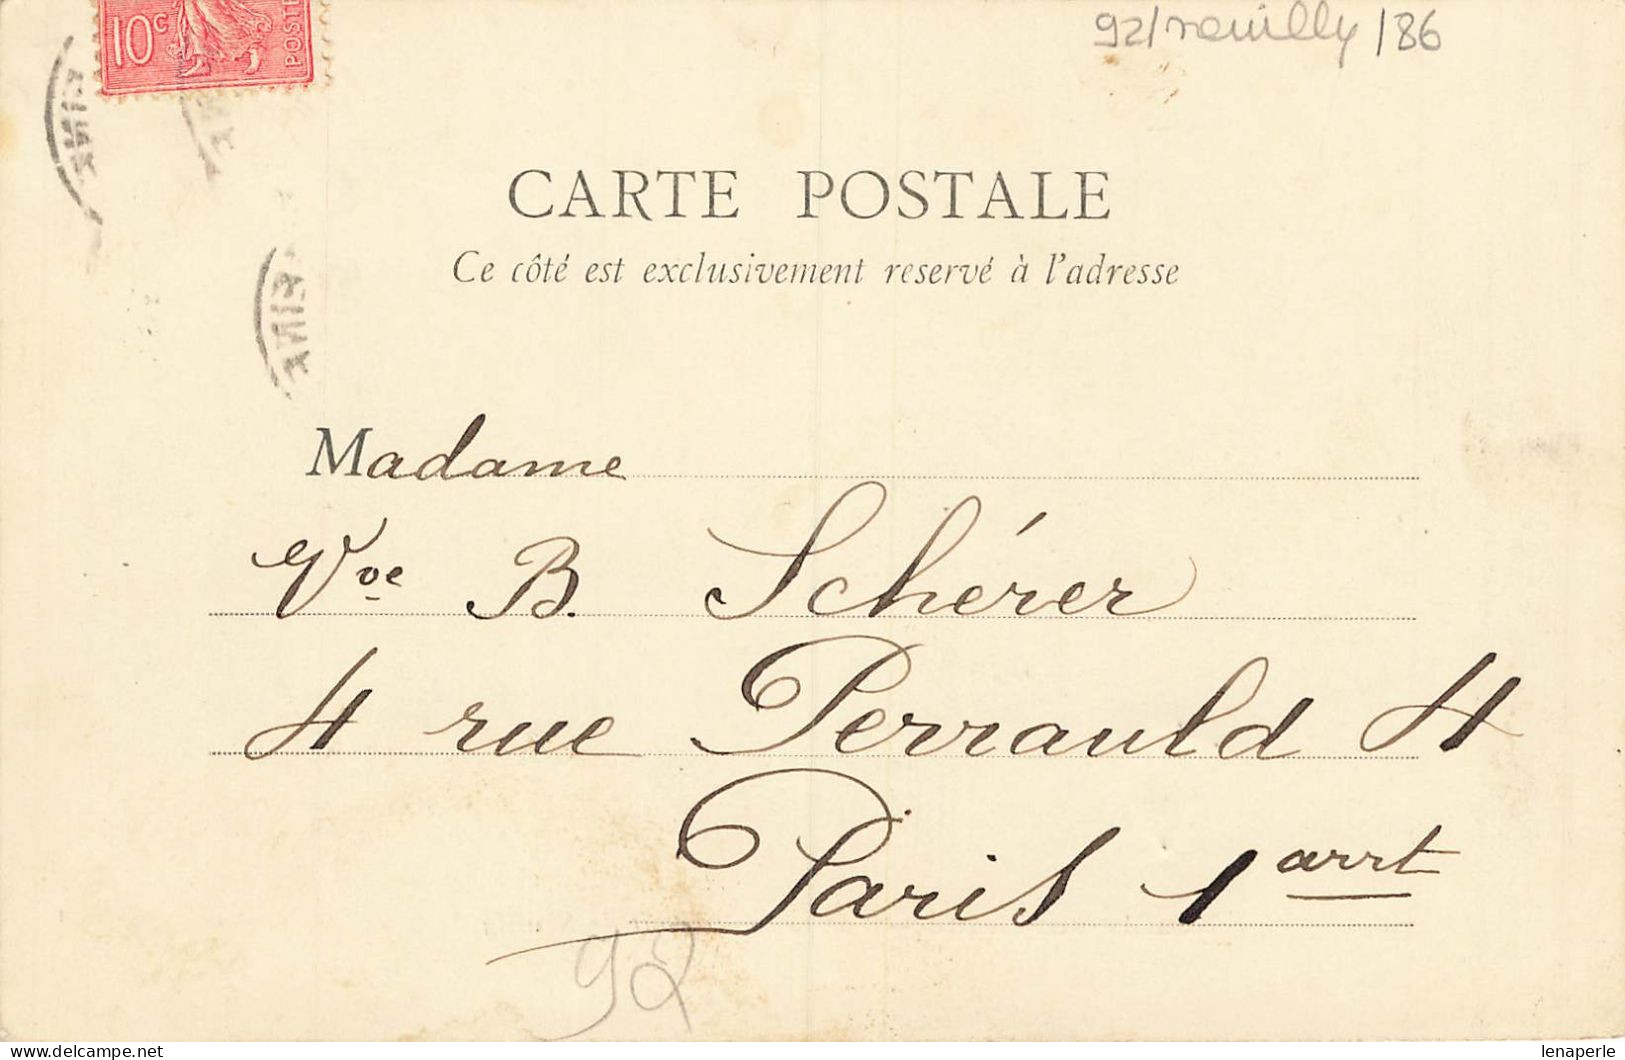 10c POSTE
92/neuilly/86
CARTE POSTALE
Ce côté est exclusivement reservé à l'adresse
Madame
Vve B. Schérer
4 rue Perrauld 4
Paris 1 arrt
92
lenaperle